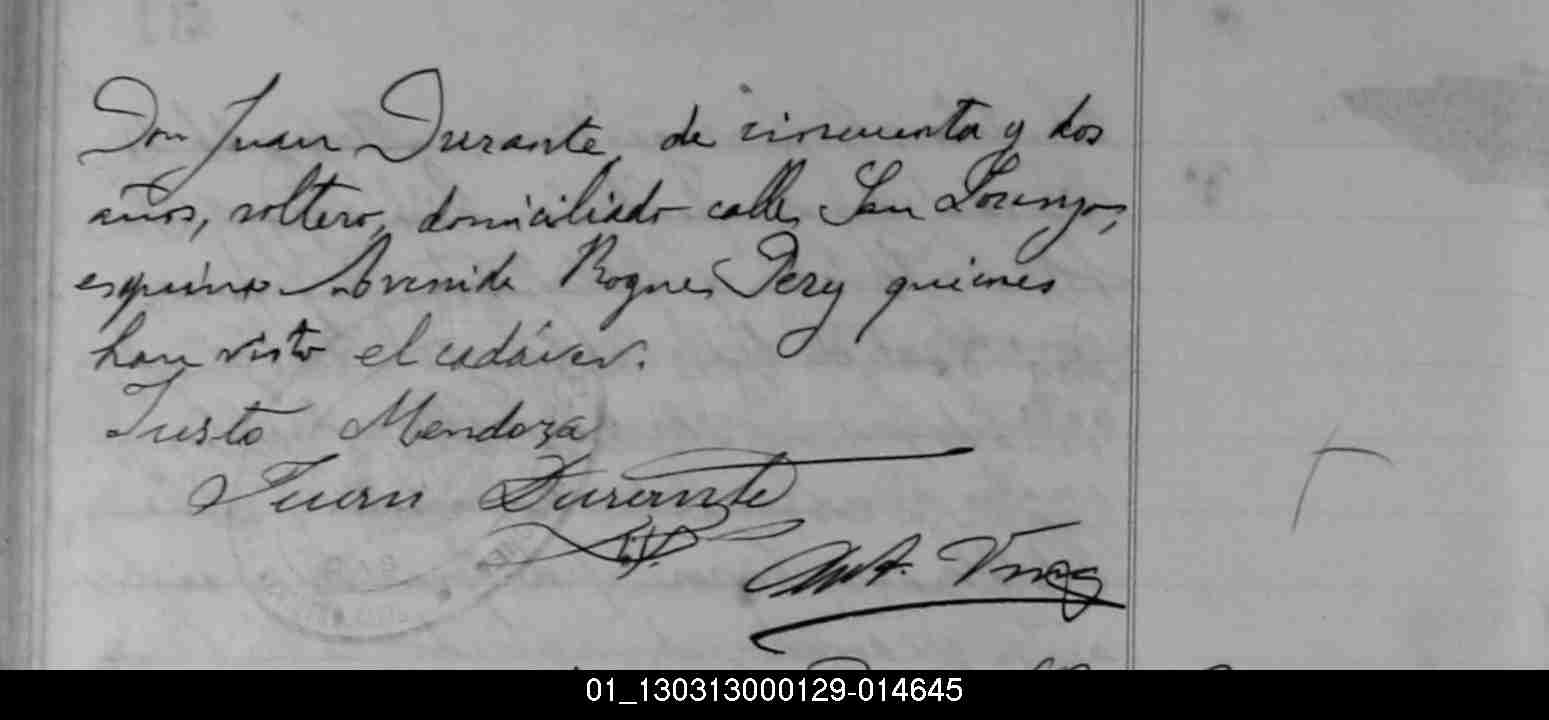 Don Juan Durante, de cincuenta y dos
años, soltero, domiciliado calle San Lorenzo,
esquina Avenida Roque Pery quienes
han visto el cadáver.
Justo Mendoza
Juan Durante
01_130313000129-014645